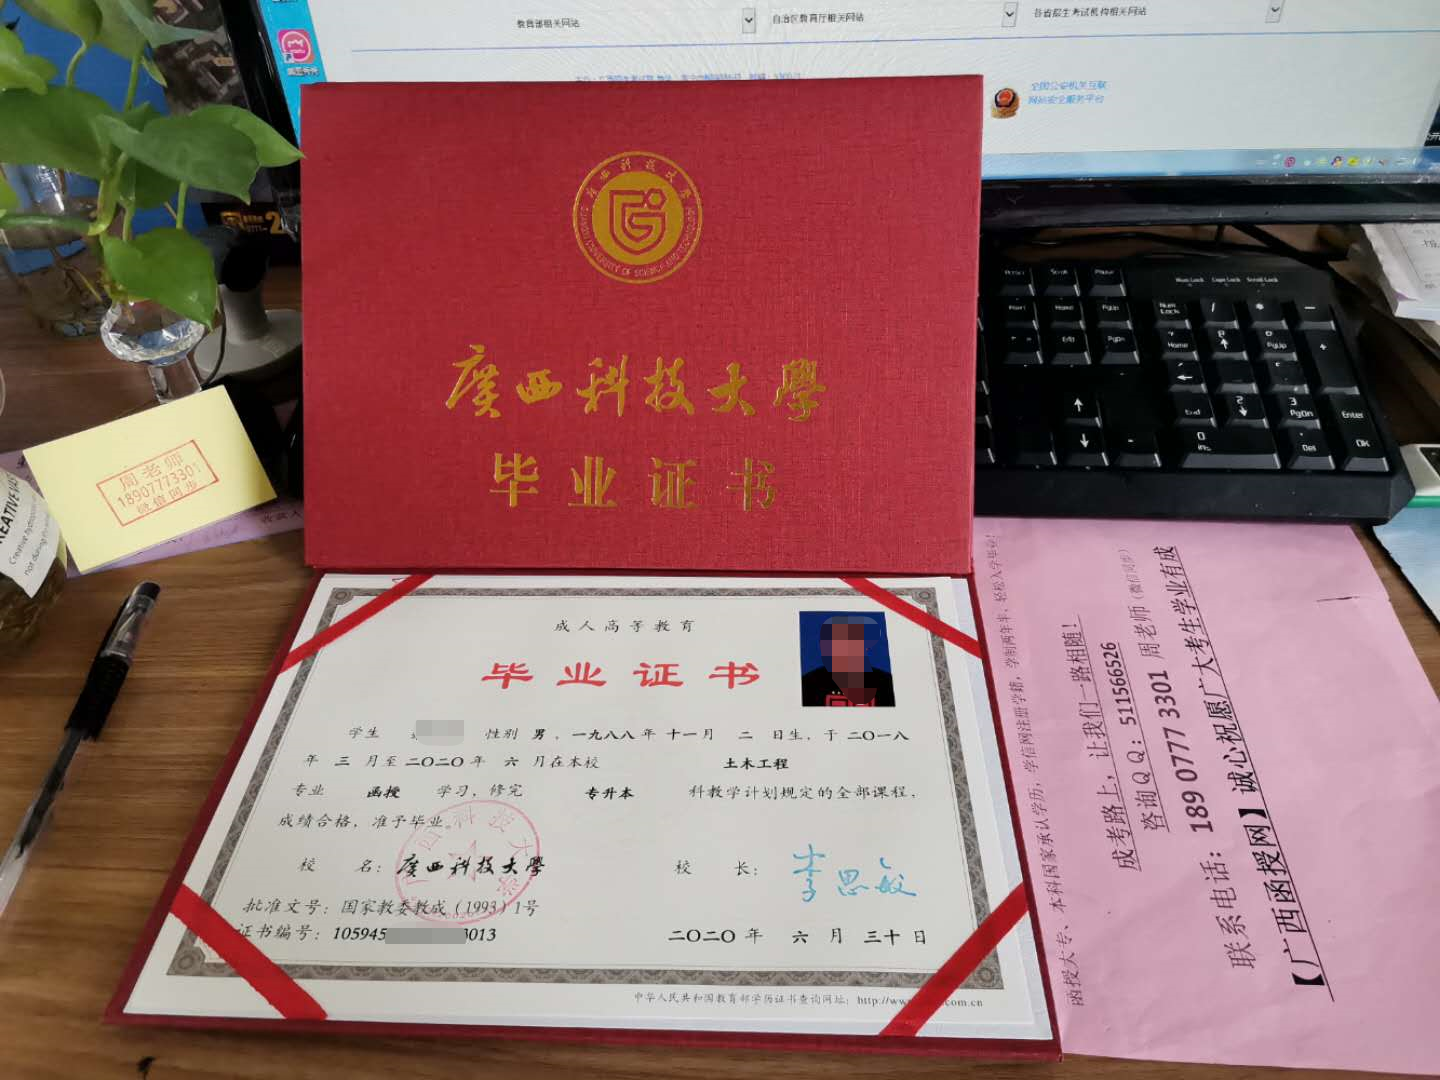 教育部相关网站
自治区教育厅相关网站
各省招生考试机构相关网站
全国公安机关互联
网站安全服务平台
广西科技大学
GUANGXI UNIVERSITY OF SCIENCE AND TECHNOLOGY
廣西科技大學
毕业证书
周老师
18907773301
微信同步
Creative hydroponic
Num Lock Caps Lock Scroll Lock
Scroll Pause
Home PgUp
End PgDn
Num Lock / * -
Home PgUp +
3
End 2 PgDn Enter
0 Ins . Del OK
成人高等教育
毕业证书
学生 性别 男，一九八八年 十一月 二 日生，于 二〇一八
年 三 月至 二〇二〇 年 六 月在本校 土木工程
专业 函授 学习，修完 专升本 科教学计划规定的全部课程，
成绩合格，准予毕业。
校 名：廣西科技大學 校 长：李思敏
批准文号：国家教委教成（1993）1号
证书编号：105945 3013
二〇二〇 年 六 月 三十 日
中华人民共和国教育部学历证书查询网址：http://www. .com.cn
函授大专、本科国家承认学历，学信网注册学籍，学制两年半，轻松入学毕业！
成考路上，让我们一路相随！
咨询QQ：511566526
联系电话：189 0777 3301 周老师（微信同步）
【广西函授网】诚心祝愿广大考生学业有成